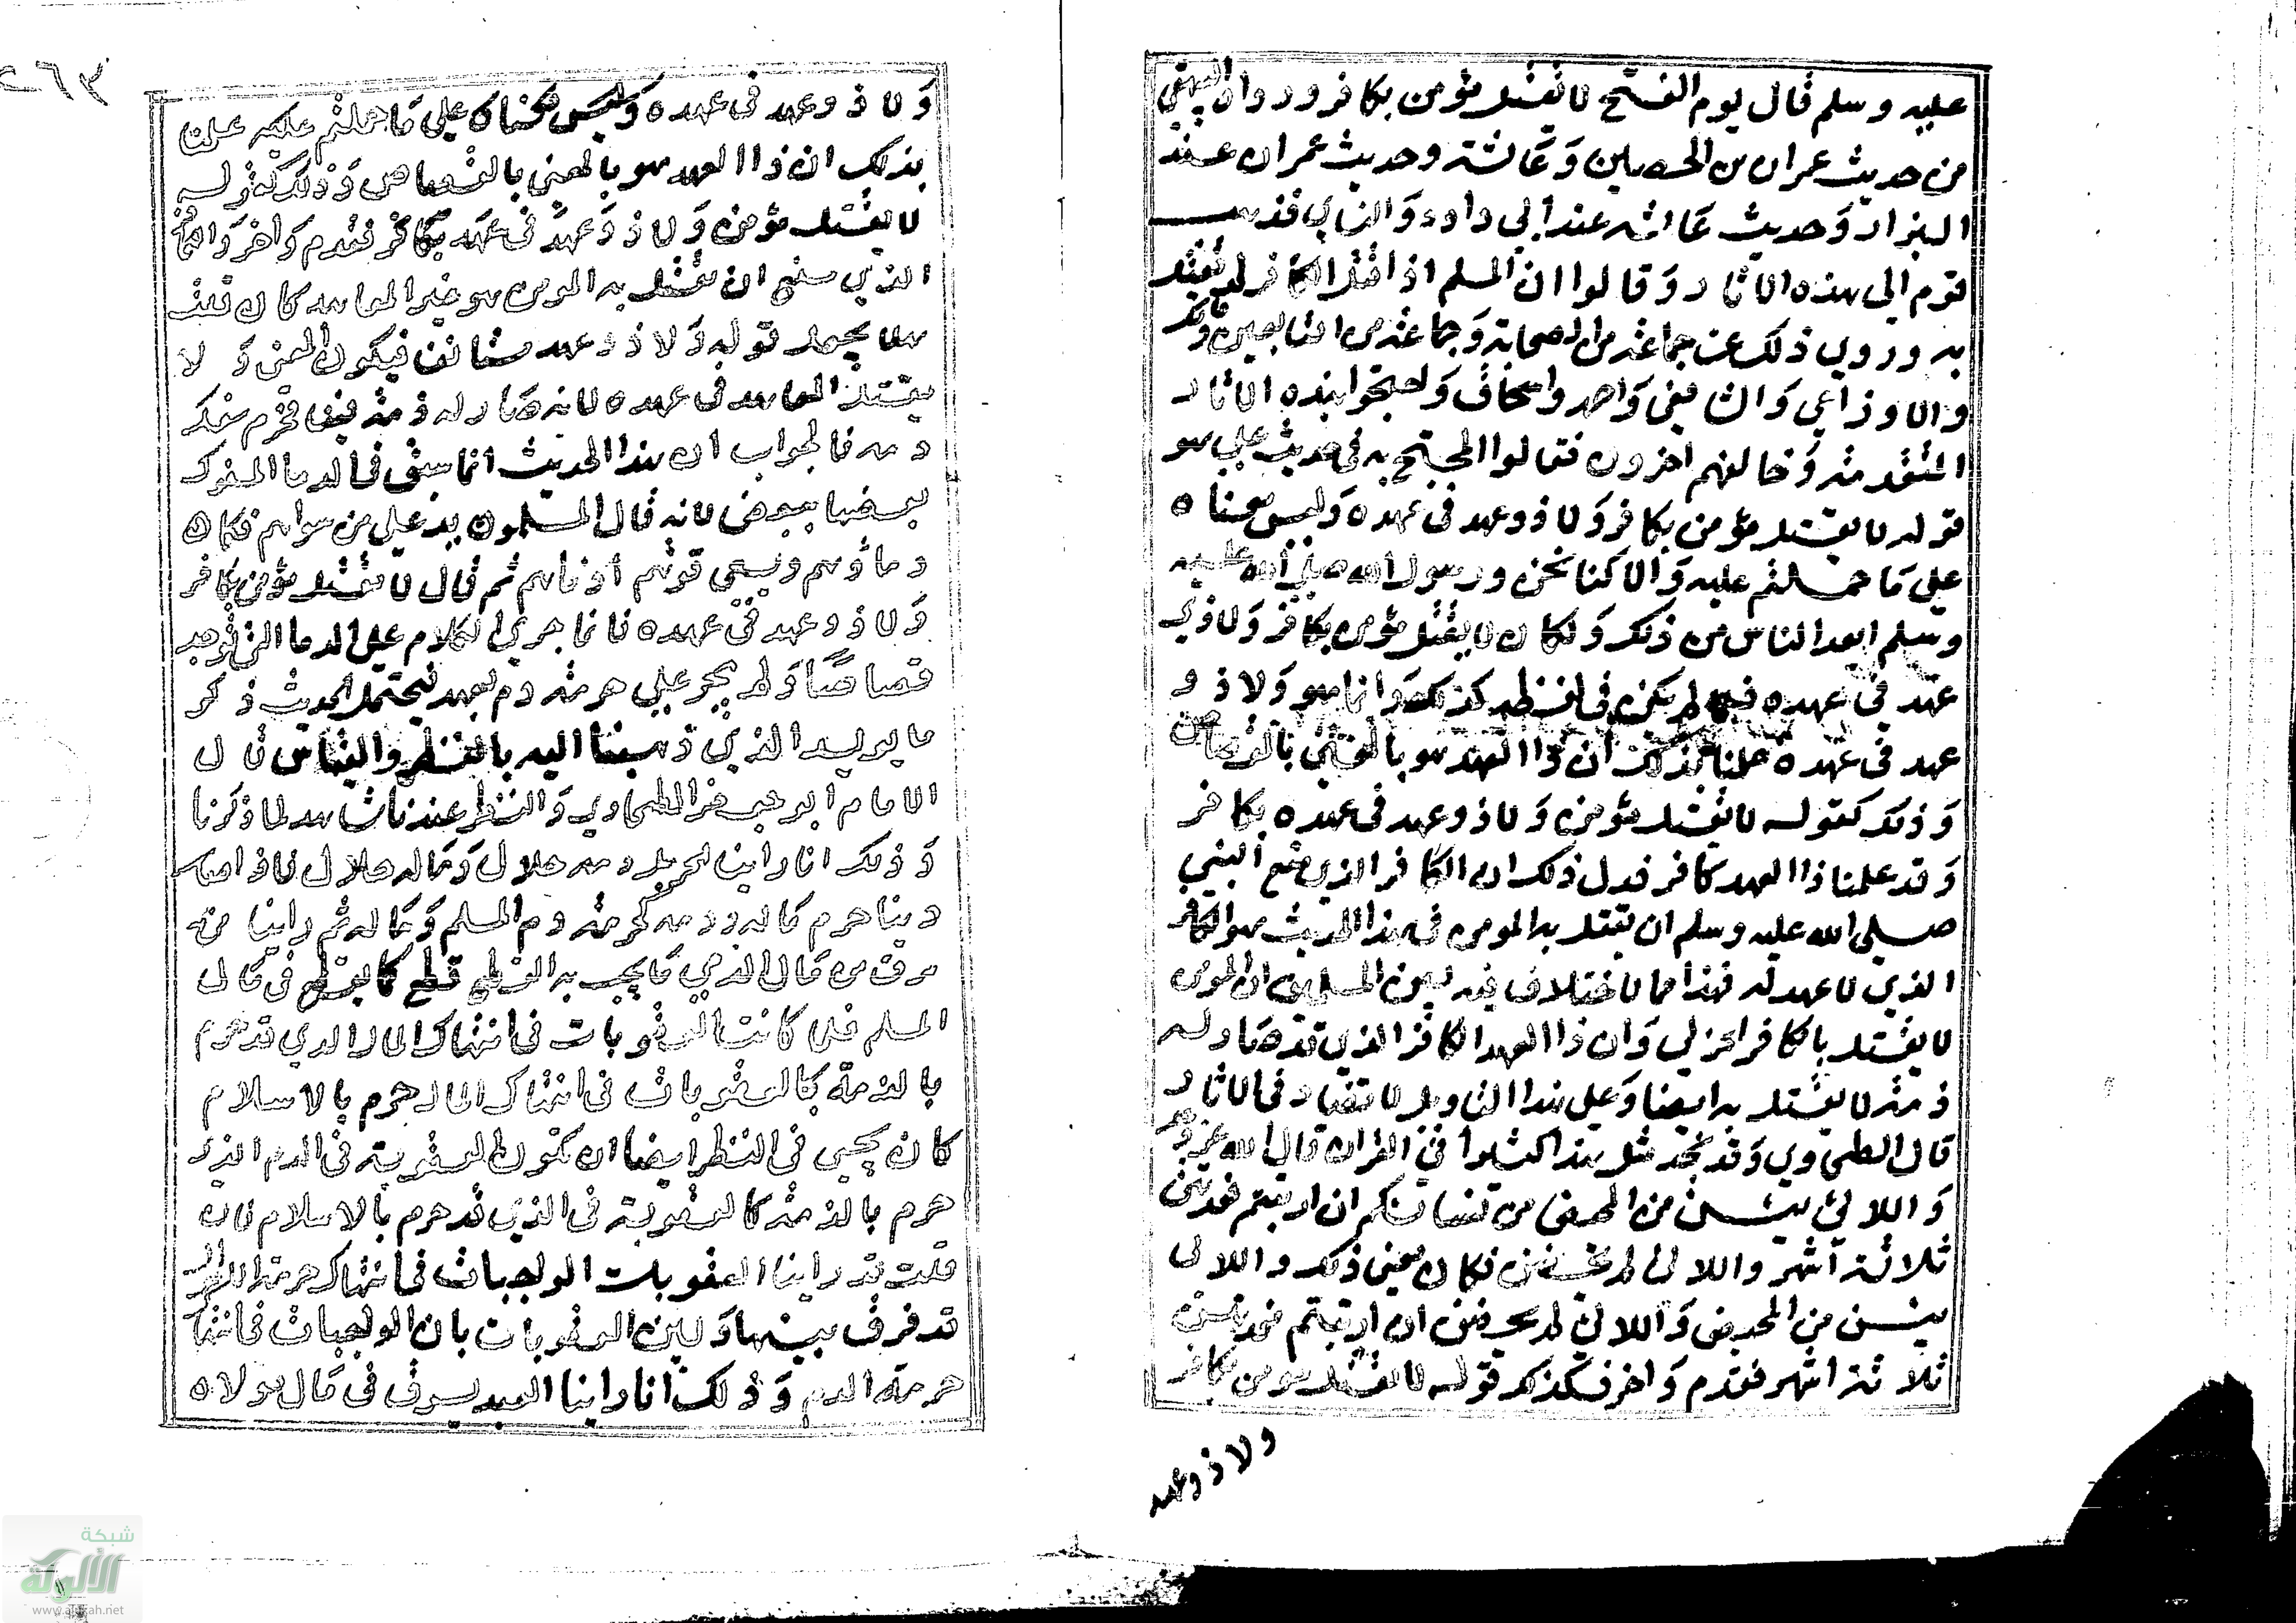 عليه وسلم قال يوم الفتح لا يقتل مؤمن بكافر ورواه البيهقي
من حديث عمران بن الحصين وعائشة وحديث عمران عند
البزار وحديث عائشة عند أبي داود والنسائي فذهب
قوم الى هذه الاثار وقالوا ان المسلم اذا قتل الكافر لم يقتل
به وروي ذلك عن جماعة من الصحابة وجماعة من التابعين
والاوزاعي والشافعي واحمد واسحاق واحتجوا بهذه الاثار
المتقدمة وخالفهم اخرون فقالوا المحتج به في حديث علي هو
قوله لا يقتل مؤمن بكافر ولا ذو عهد في عهده وليس معناه
على ما حملتم عليه والا كنا نحن ورسول الله صلى الله عليه
وسلم ابعد الناس من ذلك ولكان لا يقتل مؤمن بكافر ولا ذي
عهد في عهده فلما لم يكن في لفظه كذلك وانما هو ولا ذو
عهد في عهده علمنا بذلك ان ذا العهد هو المعني بالقصاص
وذلك كقوله لا يقتل مؤمن ولا ذو عهد في عهده بكافر
وقد علمنا ذا العهد كافر فدل ذلك ان الكافر الذي منع النبي
صلى الله عليه وسلم ان يقتل به المومن في هذا الحديث هو الكافر
الذي لا عهد له فهذا مما لا اختلاف فيه بين المسلمين ان المومن
لا يقتل بالكافر الحربي وان ذا العهد الكافر الذي قد صار له
ذمة لا يقتل به ايضا وعلى هذا التاويل لا تضاد في الاثار
قال الطحاوي وقد نجد مثل هذا كثيرا في القران قال الله عز وجل
واللائي يئسن من المحيض من نسائكم ان ارتبتم فعدتهن
ثلاثة أشهر واللائي لم يحضن فكان معنى ذلك واللائي
يئسن من المحيض واللائي لم يحضن ان ارتبتم فعدتهن
ثلاثة اشهر فقدم واخر فكذلك قوله لا يقتل مومن بكافر
ولا ذو عهد
٢٦٣
ولا ذو عهد في عهده وليس معناه على ما حملتم عليه علمنا
بذلك ان ذا العهد هو بالمعني بالقصاص وذلك كقوله
لا يقتل مؤمن ولا ذو عهد في عهده بكافر فقدم واخر
الذي منع ان يقتل به المومن هو غير المعاهد
هلا يحمل قوله ولا ذو عهد مستانف فيكون المعنى ولا
يقتل المعاهد في عهده لانه صار له ذمة فيها
دمه فالجواب ان هذا الحديث انما سبق في الدما المسفوك
بعضها ببعض لانه قال المسلمون يد على من سواهم فكان
دماؤهم ويسعى ادناهم ثم قال لا يقتل مؤمن بكافر
ولا ذو عهد في عهده فانما جرى الكلام على الدما التي توخذ
قصاصا ولم يجر على حرمة دم بعهد فيحتمل الحديث ذكر
ما يويد الذي ذهبنا اليه بالنظر والقياس قال
الامام ابو جعفر الطحاوي والنظر عندنا شاهد لما ذكرنا
وذلك انا راينا الحربي دمه حلال وماله حلال فاذا صار
ذميا حرم ماله ودمه كحرمة دم المسلم وماله ثم راينا من
سرق من مال الذمي ما يجب به القطع قطع كما يقطع في مال
المسلم فلما كانت العقوبات في انتهاك المال الذي قد حرم
بالذمة كالعقوبات في انتهاك المال حرم بالاسلام
كان يجي في النظر ايضا ان تكون العقوبة في الدم الذي
حرم بالذمة كالعقوبة في الذي قد حرم بالاسلام فان
قلت قد راينا العقوبات الواجبات في انتهاك حرمة المال
قد فرق بينها وبين العقوبات بان الواجبات في انتهاك
حرمة الدم وذلك انا راينا العبد يسرق في مال مولاه
شبكة
الألوكة
www.alukah.net